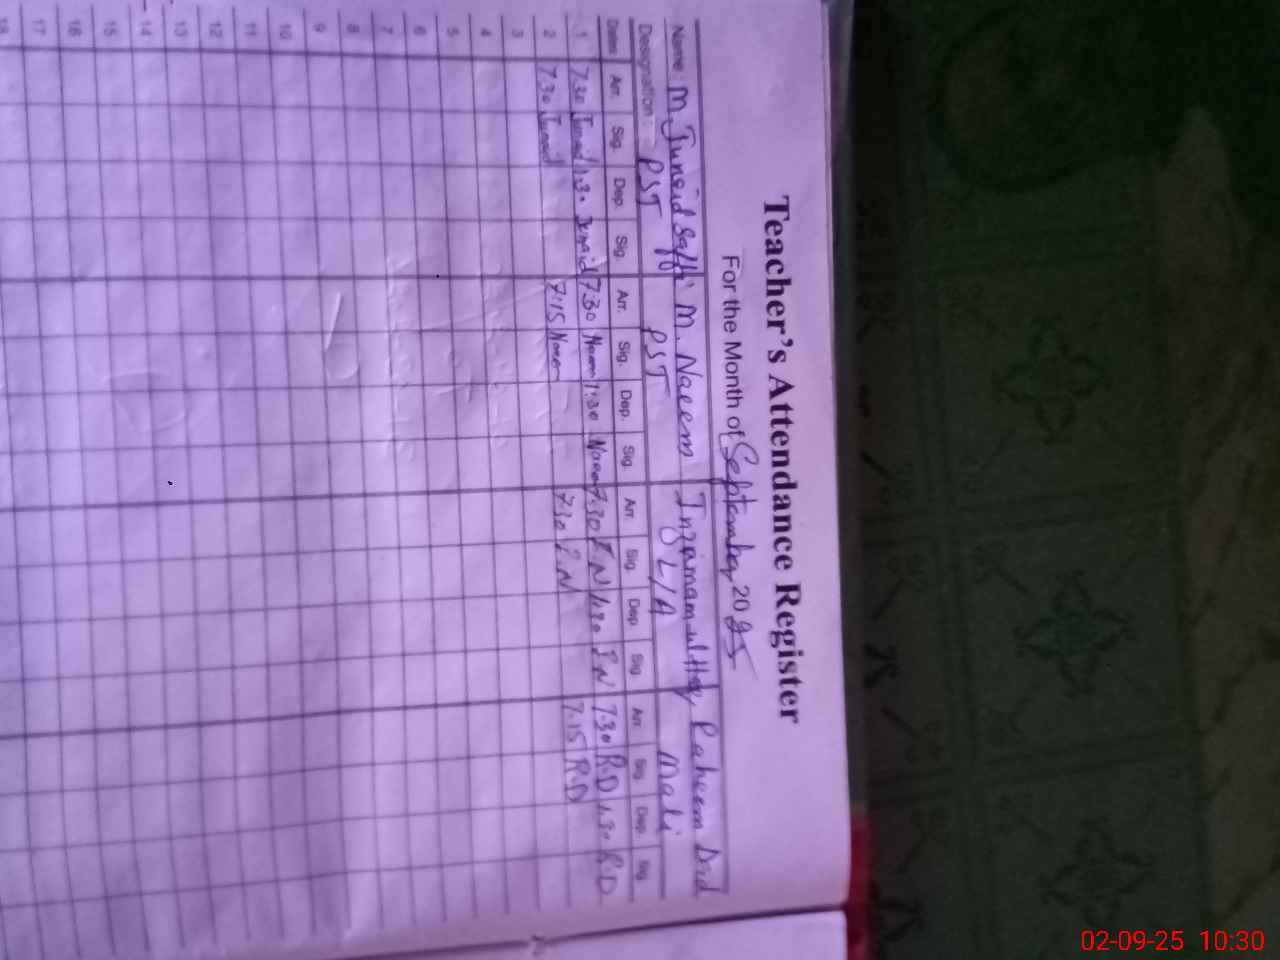 Teacher's Attendance Register
For the Month of September 2025
Name: M Junaid Saffi M. Naeem Inzamam ul Haq Raheem Dad
Designation: PST PST L/A Mali
Date Arr. Sig. Dep. Sig. Arr. Sig. Dep. Sig. Arr. Sig. Dep. Sig. Arr. Sig. Dep. Sig.
1 7.30 Junaid 1.30 Junaid 7.30 Naeem 1:30 Naeem 7.30 I.N 1.30 I.N 7.30 R.D 1.30 R.D
2 7.30 Junaid 7:15 Naeem 7.30 I.N 7.15 R.D
3
4
5
6
7
8
9
10
11
12
13
14
15
16
17
18
02-09-25 10:30